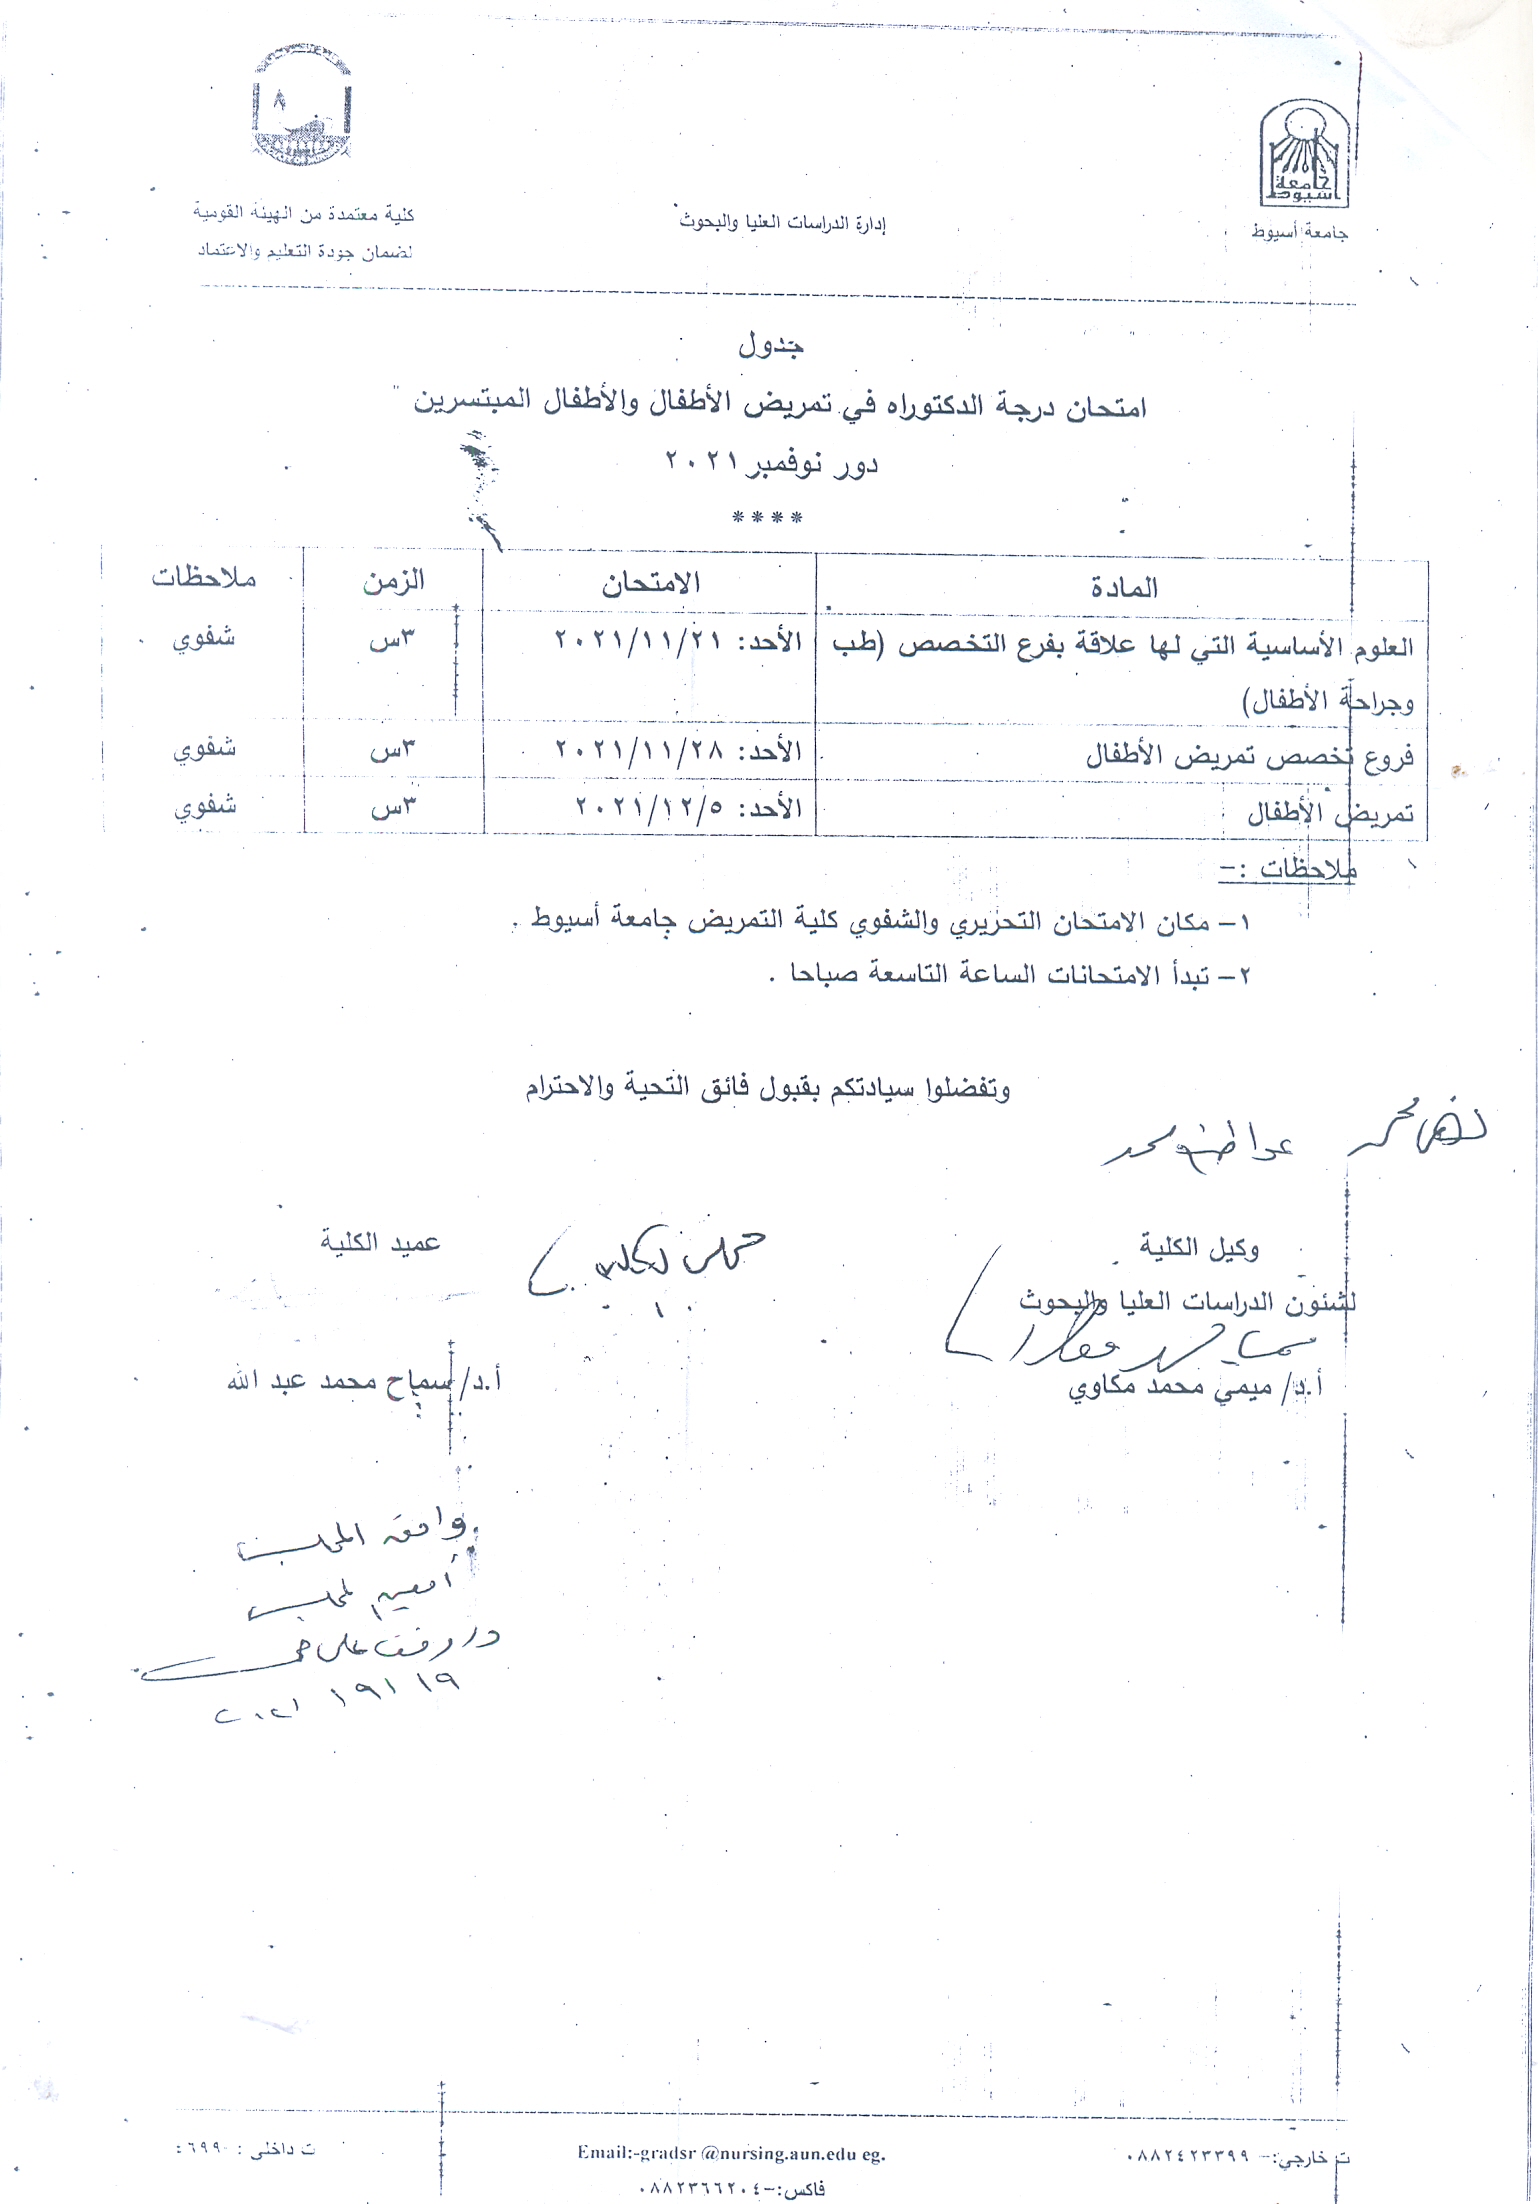 جامعة أسيوط
جامعة أسيوط
إدارة الدراسات العليا والبحوث
كلية معتمدة من الهيئة القومية
لضمان جودة التعليم والاعتماد
جدول
امتحان درجة الدكتوراه في تمريض الأطفال والأطفال المبتسرين "
دور نوفمبر ٢٠٢١
****
المادة الامتحان الزمن ملاحظات
العلوم الأساسية التي لها علاقة بفرع التخصص (طب الأحد: ٢٠٢١/١١/٢١ ٣س شفوي
وجراحة الأطفال)
فروع تخصص تمريض الأطفال الأحد: ٢٠٢١/١١/٢٨ ٣س شفوي
تمريض الأطفال الأحد: ٢٠٢١/١٢/٥ ٣س شفوي
ملاحظات :-
١- مكان الامتحان التحريري والشفوي كلية التمريض جامعة أسيوط .
٢- تبدأ الامتحانات الساعة التاسعة صباحا .
وتفضلوا سيادتكم بقبول فائق التحية والاحترام
وكيل الكلية عميد الكلية
لشئون الدراسات العليا والبحوث
أ.د/ ميمي محمد مكاوي أ.د/ سماح محمد عبد الله
وافق المجلس
أمين المجلس
ت خارجي:- ٠٨٨٢٤٢٣٣٩٩ Email:-gradsr @nursing.aun.edu eg. ت داخلى : ٦٩٩٠:
فاكس:-٠٨٨٢٣٦٦٢٠٤